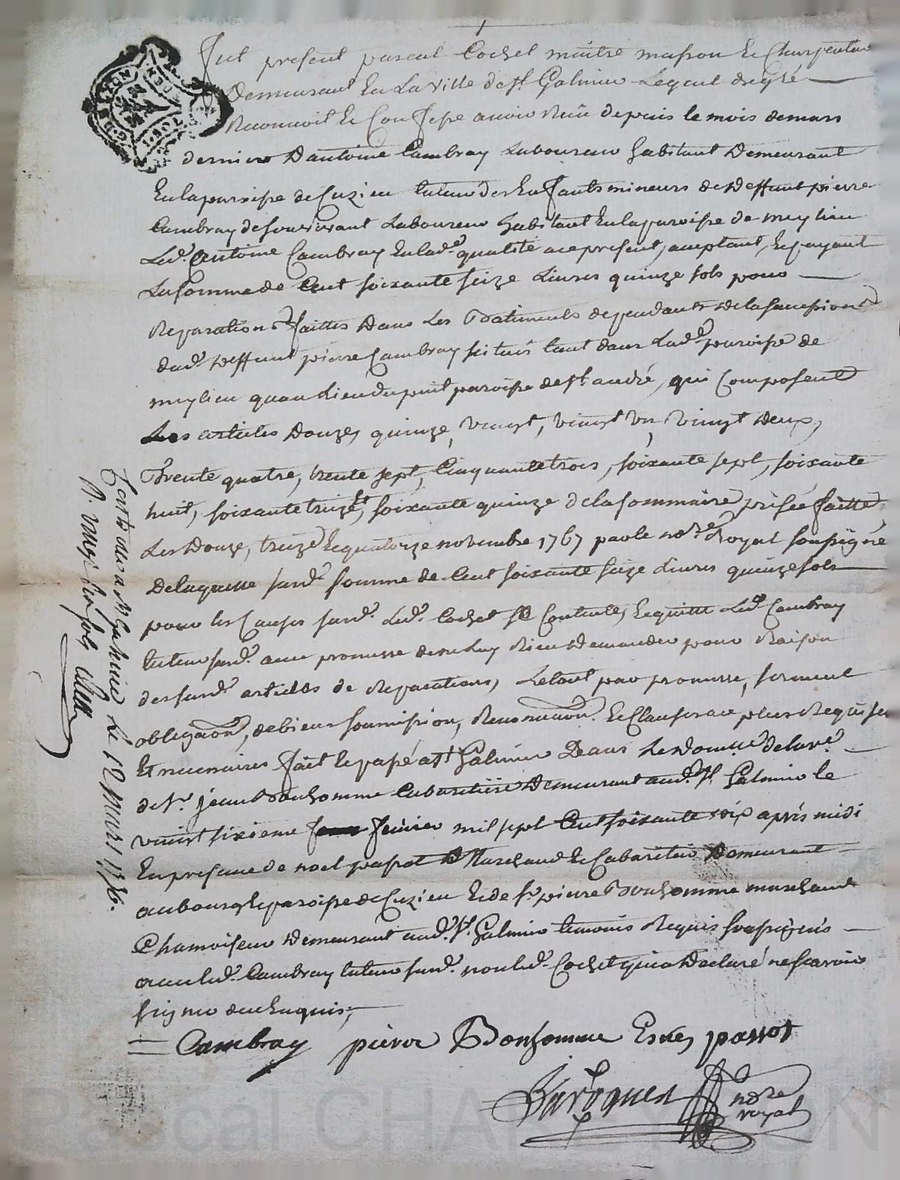 fut present pascal Cochet maitre masson Et Charpentier
Demeurant En La Ville de st Galmier Lequel de gré
Reconnoit Et Confesse avoir Reçu depuis le mois de mars
dernier D'antoine Cambray Laboureur habitant Demeurant
En la paroisse de Cuzieu tuteur des Enfants mineurs de deffunt pierre
Cambray de son vivant Laboureur habitant En la paroisse de meylieu
Led. antoine Cambray En lad. qualité a ce present, aceptant, Et payant
La somme de Cent soixante seize Livres quinze sols pour
Reparations faittes Dans Les Batiments dependants de la succession
dud. deffunt pierre Cambray scitués tant dans Lad. paroisse de
meylieu quau Lieu du paroisse de st andré, qui Composent
Les articles Douze, quinze, vingt, vingt un, vingt Deux,
Trente quatre, trente sept, Cinquante trois, soixante sept, soixante
huit, soixante treize, Et soixante quinze de la sommaire prisée faitte
Les Douze, treize Et quatorze novembre 1767 par le nore Royal soussigné
De laquelle susd. somme de Cent soixante seize Livres quinze sols
pour les Causes susd. Led. Cochet se Contente, Et quitte Led. Cambray
tuteur susd. avec promesse de ne luy Rien Demander pour Raison
des susd. articles de Reparations, Le tout par promesse, serment
obligaon, de biens soumission, Renonciaon. Et Clauses a ce plus Requises
Et necessaires fait Et passé a st Galmier Dans Le domicile de
de sr. jean Bonhomme Cabaretier Demeurant aud. st. Galmier le
vingt sixieme fevrier mil sept Cent soixante dix après midi
En presence de noel passot Marchand Et Cabaretier Demeurant
au bourg Et paroisse de Cuzieu Et de sr. pierre Bonhomme marchand
Chamoiseur Demeurant aud. st. Galmier temoins Requis soussignés
avec led. Cambray tuteur susd. non led. Cochet qui a Declaré ne scavoir
signer de ce Enquis,
Cambray pierre Bonhomme passot
nore
royal
a st Galmier Le 12 mars
R
Pascal